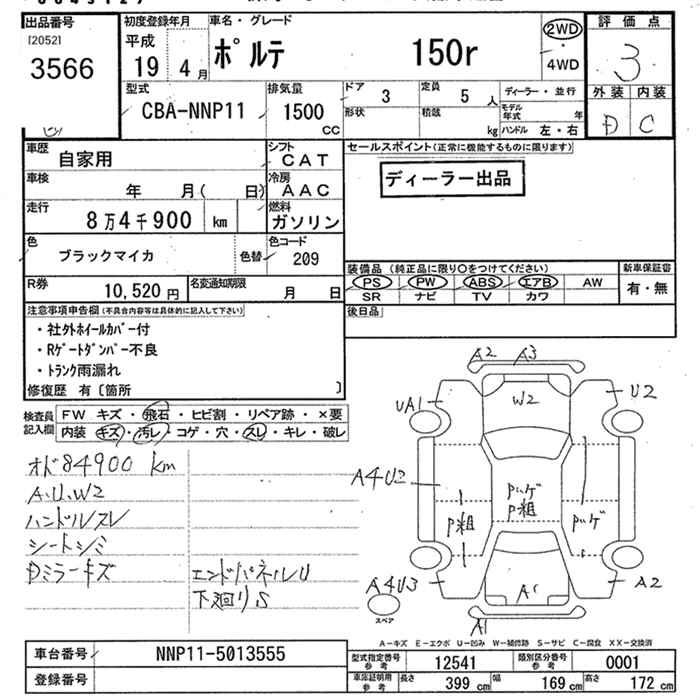 出品番号 初度登録年月 車名・グレード 評価点
[2052] 平成 19 4月 ポルテ 150r 2WD ・ 4WD 3
3566
型式 排気量 ドア 3 定員 5人 ディーラー・並行 外装 内装
CBA-NNP11 1500CC 形状 積載 kg モデル年式 年 D C
ハンドル 左・右
車歴 自家用 シフト CAT セールスポイント(正常に機能するものに限ります)
車検 年 月( 日) 冷房 AAC ディーラー出品
走行 8万4千900 km 燃料 ガソリン
色 ブラックマイカ 色替 色コード 209
装備品(純正品に限り○をつけてください) 新車保証書
R券 10,520円 名変通知期限 月 日 PS PW ABS エアB AW 有・無
SR ナビ TV カワ
注意事項申告欄(不具合内容等は具体的に記入して下さい) 後日品
・社外ホイールカバー付
・Rゲートダンパー不良
・トランク雨漏れ
修復歴 有〔箇所 〕
検査員記入欄 FW キズ・飛石・ヒビ割・リペア跡・×要
内装 キズ・汚レ・コゲ・穴・スレ・キレ・破レ
オド84900 km
A.U.W2
ハンドルスレ
シートシミ
Dミラーキズ エンドパネルU
下廻りS
A2 A3
UA1 W2 U2
A4U2
Pハゲ
P粗
P粗 Pハゲ
A4U3 A2
スペア
A1
A-キズ E-エクボ U-凹み W-補修跡 S-サビ C-腐食 XX-交換済
車台番号 NNP11-5013555 型式指定番号 参考 12541 類別区分番号 参考 0001
登録番号 車庫証明用 参考 長さ 399cm 幅 169cm 高さ 172cm